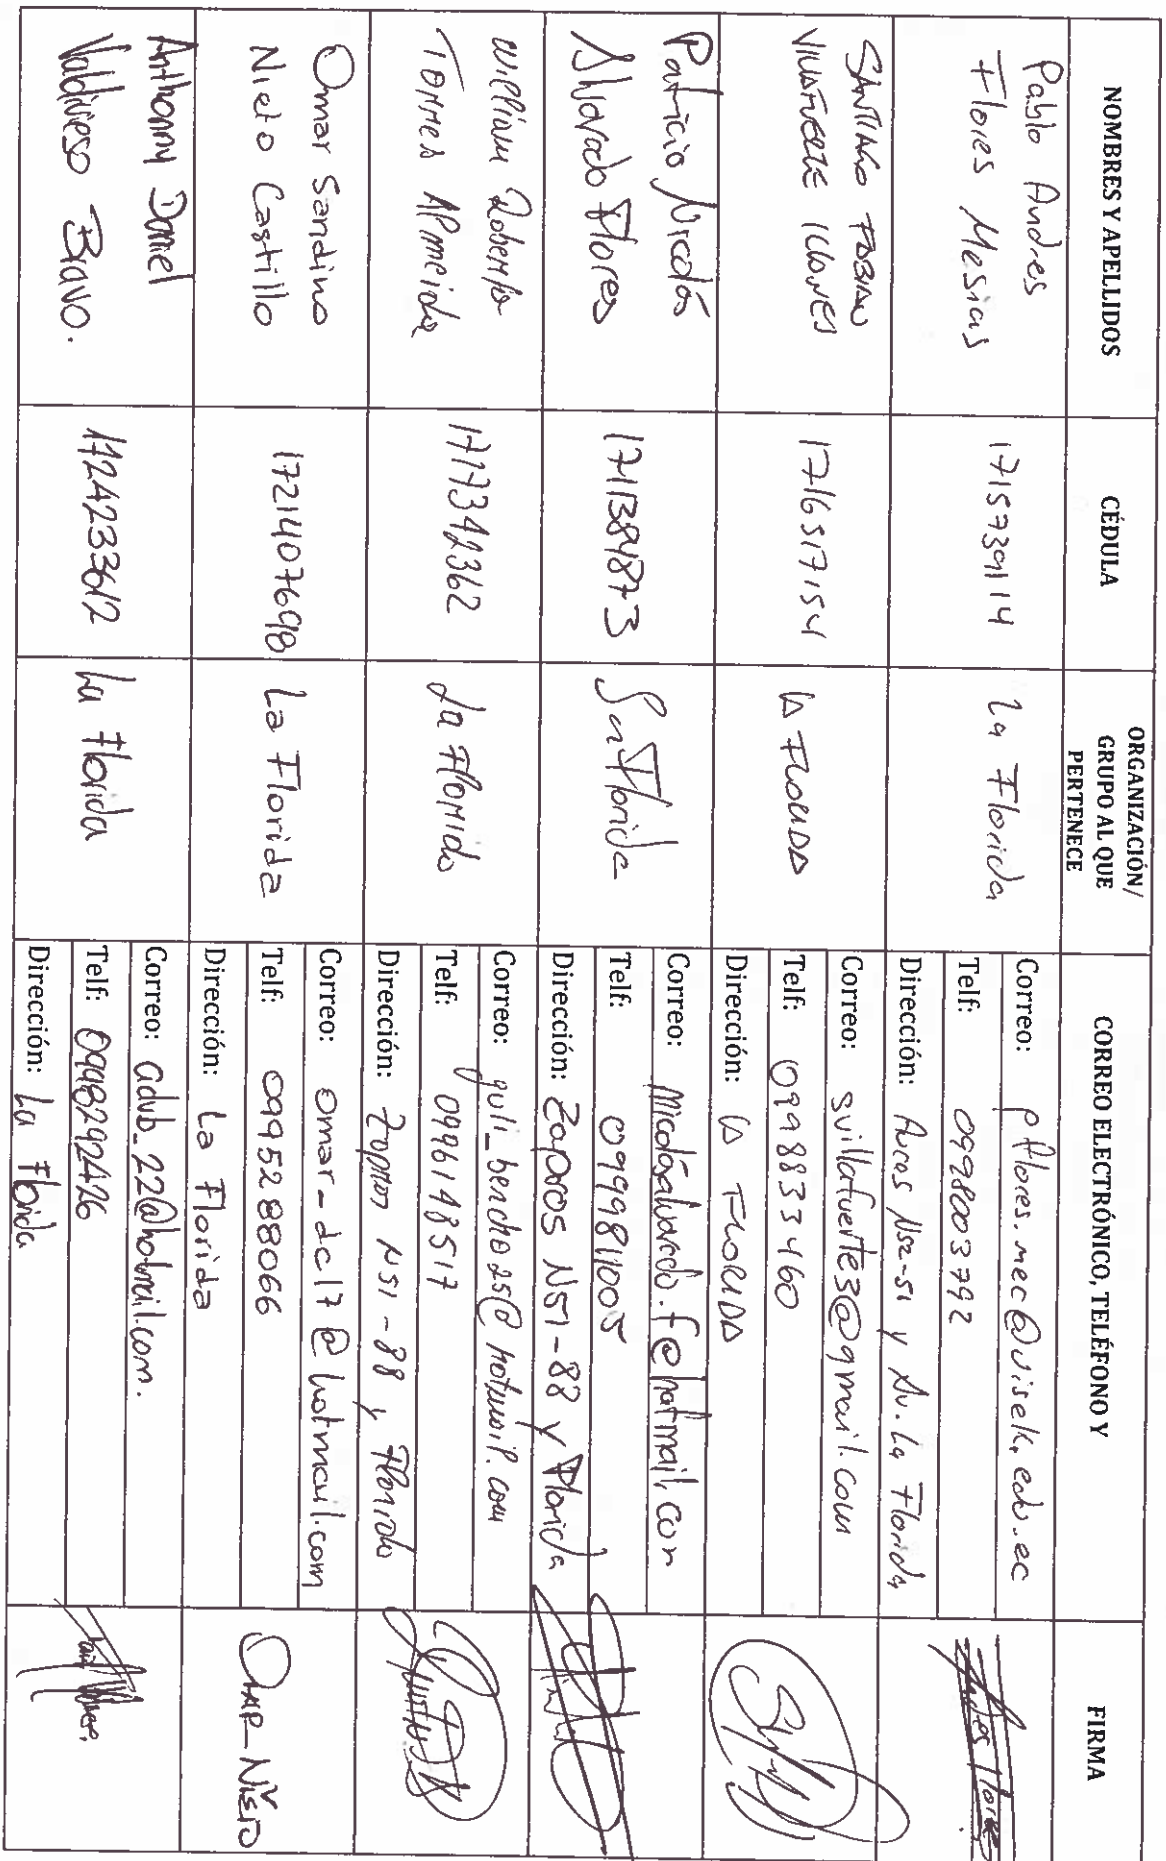 NOMBRES Y APELLIDOS
CÉDULA
ORGANIZACIÓN/
GRUPO AL QUE
PERTENECE
CORREO ELECTRÓNICO, TELÉFONO Y
FIRMA
Pablo Andres
Flores Mesias
1715739114
La Florida
Correo: pflores.mec@uisek.edu.ec
Telf: 0998003792
Dirección: N52-51 y Av. La Florida
SANTIAGO FABIAN
VILLAFUERTE
1716517154
LA FLORIDA
Correo: svillafuerte3@gmail.com
Telf: 0998833460
Dirección: LA FLORIDA
Patricio Nicolás
Alvarado Flores
1711384873
La Florida
Correo: Nicolásalvarado.f@hotmail.com
Telf: 0999811005
Dirección: Zaparos N51-88 y Florida
William Roberto
Torres Almeida
1717342362
La Florida
Correo: guli_bencho25@hotmail.com
Telf: 0996148517
Dirección: N51-88 y Florida
Omar Sandino
Nieto Castillo
1721407698
La Florida
Correo: omar-dc17@hotmail.com
Telf: 0995288066
Dirección: La Florida
OMAR NIETO
Anthonny Daniel
Valdivieso Bravo.
1724233612
La Florida
Correo: advb_22@hotmail.com.
Telf: 0998292426
Dirección: La Florida